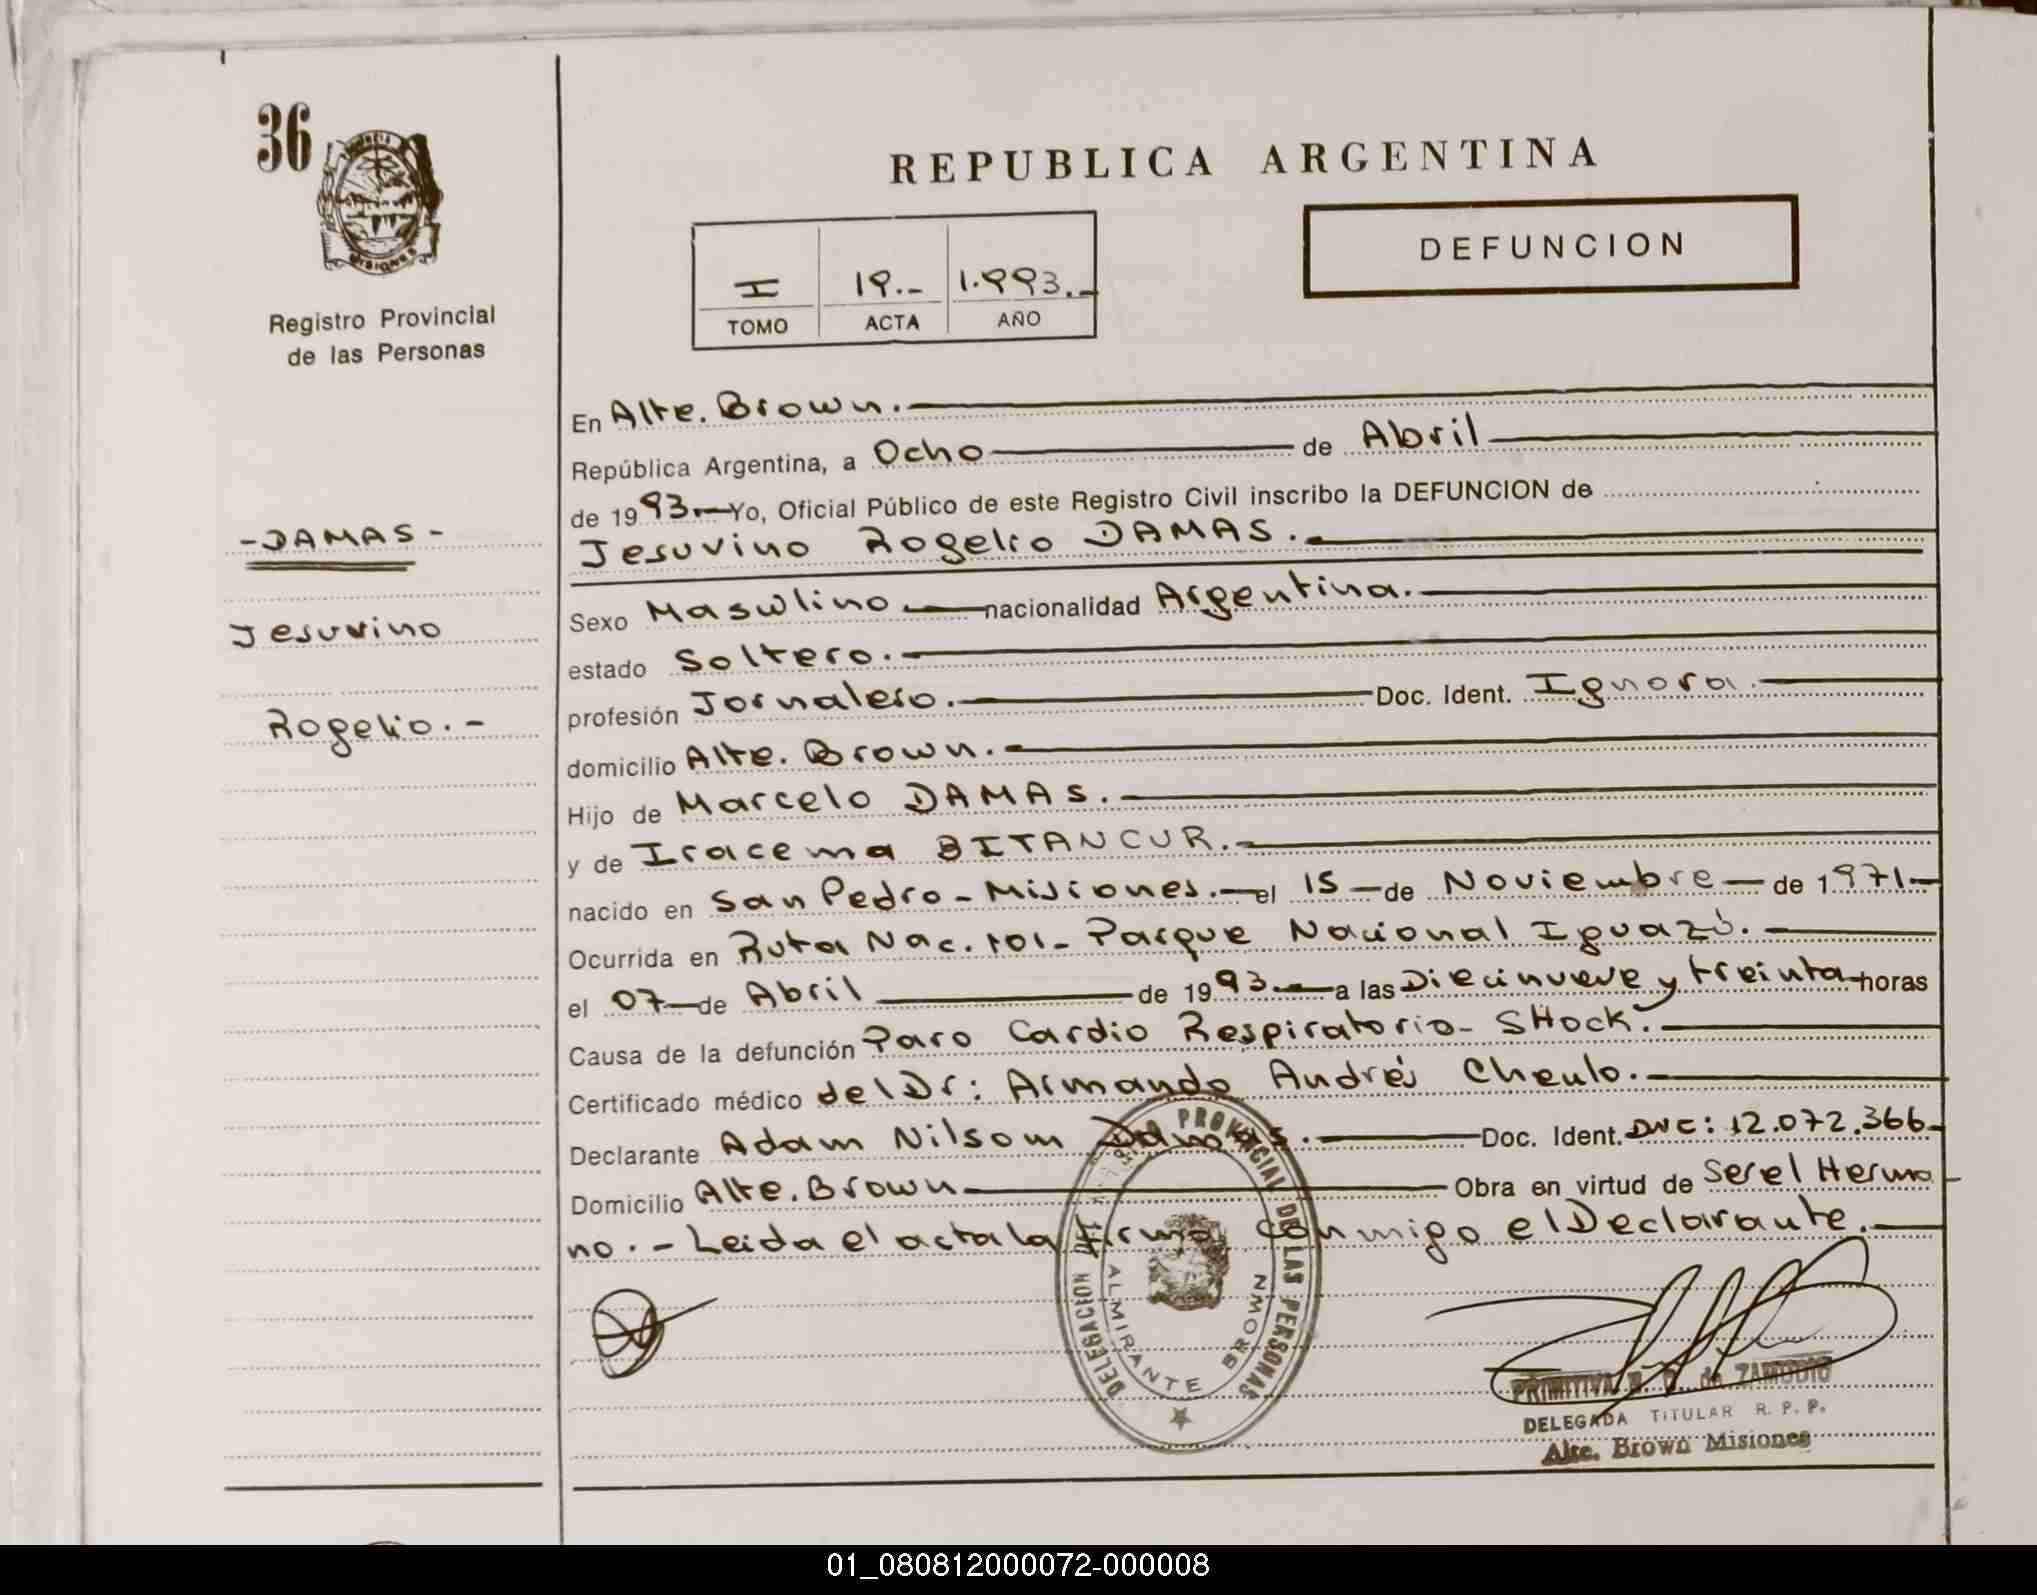 36
PROVINCIA
MISIONES
Registro Provincial
de las Personas
-DAMAS-
Jesuvino
Rogelio.-
REPUBLICA ARGENTINA
DEFUNCION
I 19.- 1.993.-
TOMO ACTA AÑO
En Alte. Brown.
República Argentina, a Ocho de Abril
de 1993 Yo, Oficial Público de este Registro Civil inscribo la DEFUNCION de
Jesuvino Rogelio DAMAS.
Sexo Masculino nacionalidad Argentina.
estado Soltero.
profesión Jornalero. Doc. Ident. Ignora.
domicilio Alte. Brown.
Hijo de Marcelo DAMAS.
y de Iracema BITANCUR.
nacido en San Pedro - Misiones. el 15 de Noviembre de 1971
Ocurrida en Ruta Nac. 101- Parque Nacional Iguazú.
el 07 de Abril de 1993 a las Diecinueve y treinta horas
Causa de la defunción Paro Cardio Respiratorio- SHock.
Certificado médico del Dr: Armando Andrés
Declarante Adam Nilsom Damas. Doc. Ident. 12.072.366
Domicilio Alte. Brown Obra en virtud de Ser el Herma
no.- Leida el acta la firma conmigo el Declarante.
PROVINCIAL DE LAS PERSONAS
DELEGACION
ALMIRANTE BROWN
PRIMITIVA de ZAMUDIO
DELEGADA TITULAR R. P. P.
Alte. Brown Misiones
01_080812000072-000008